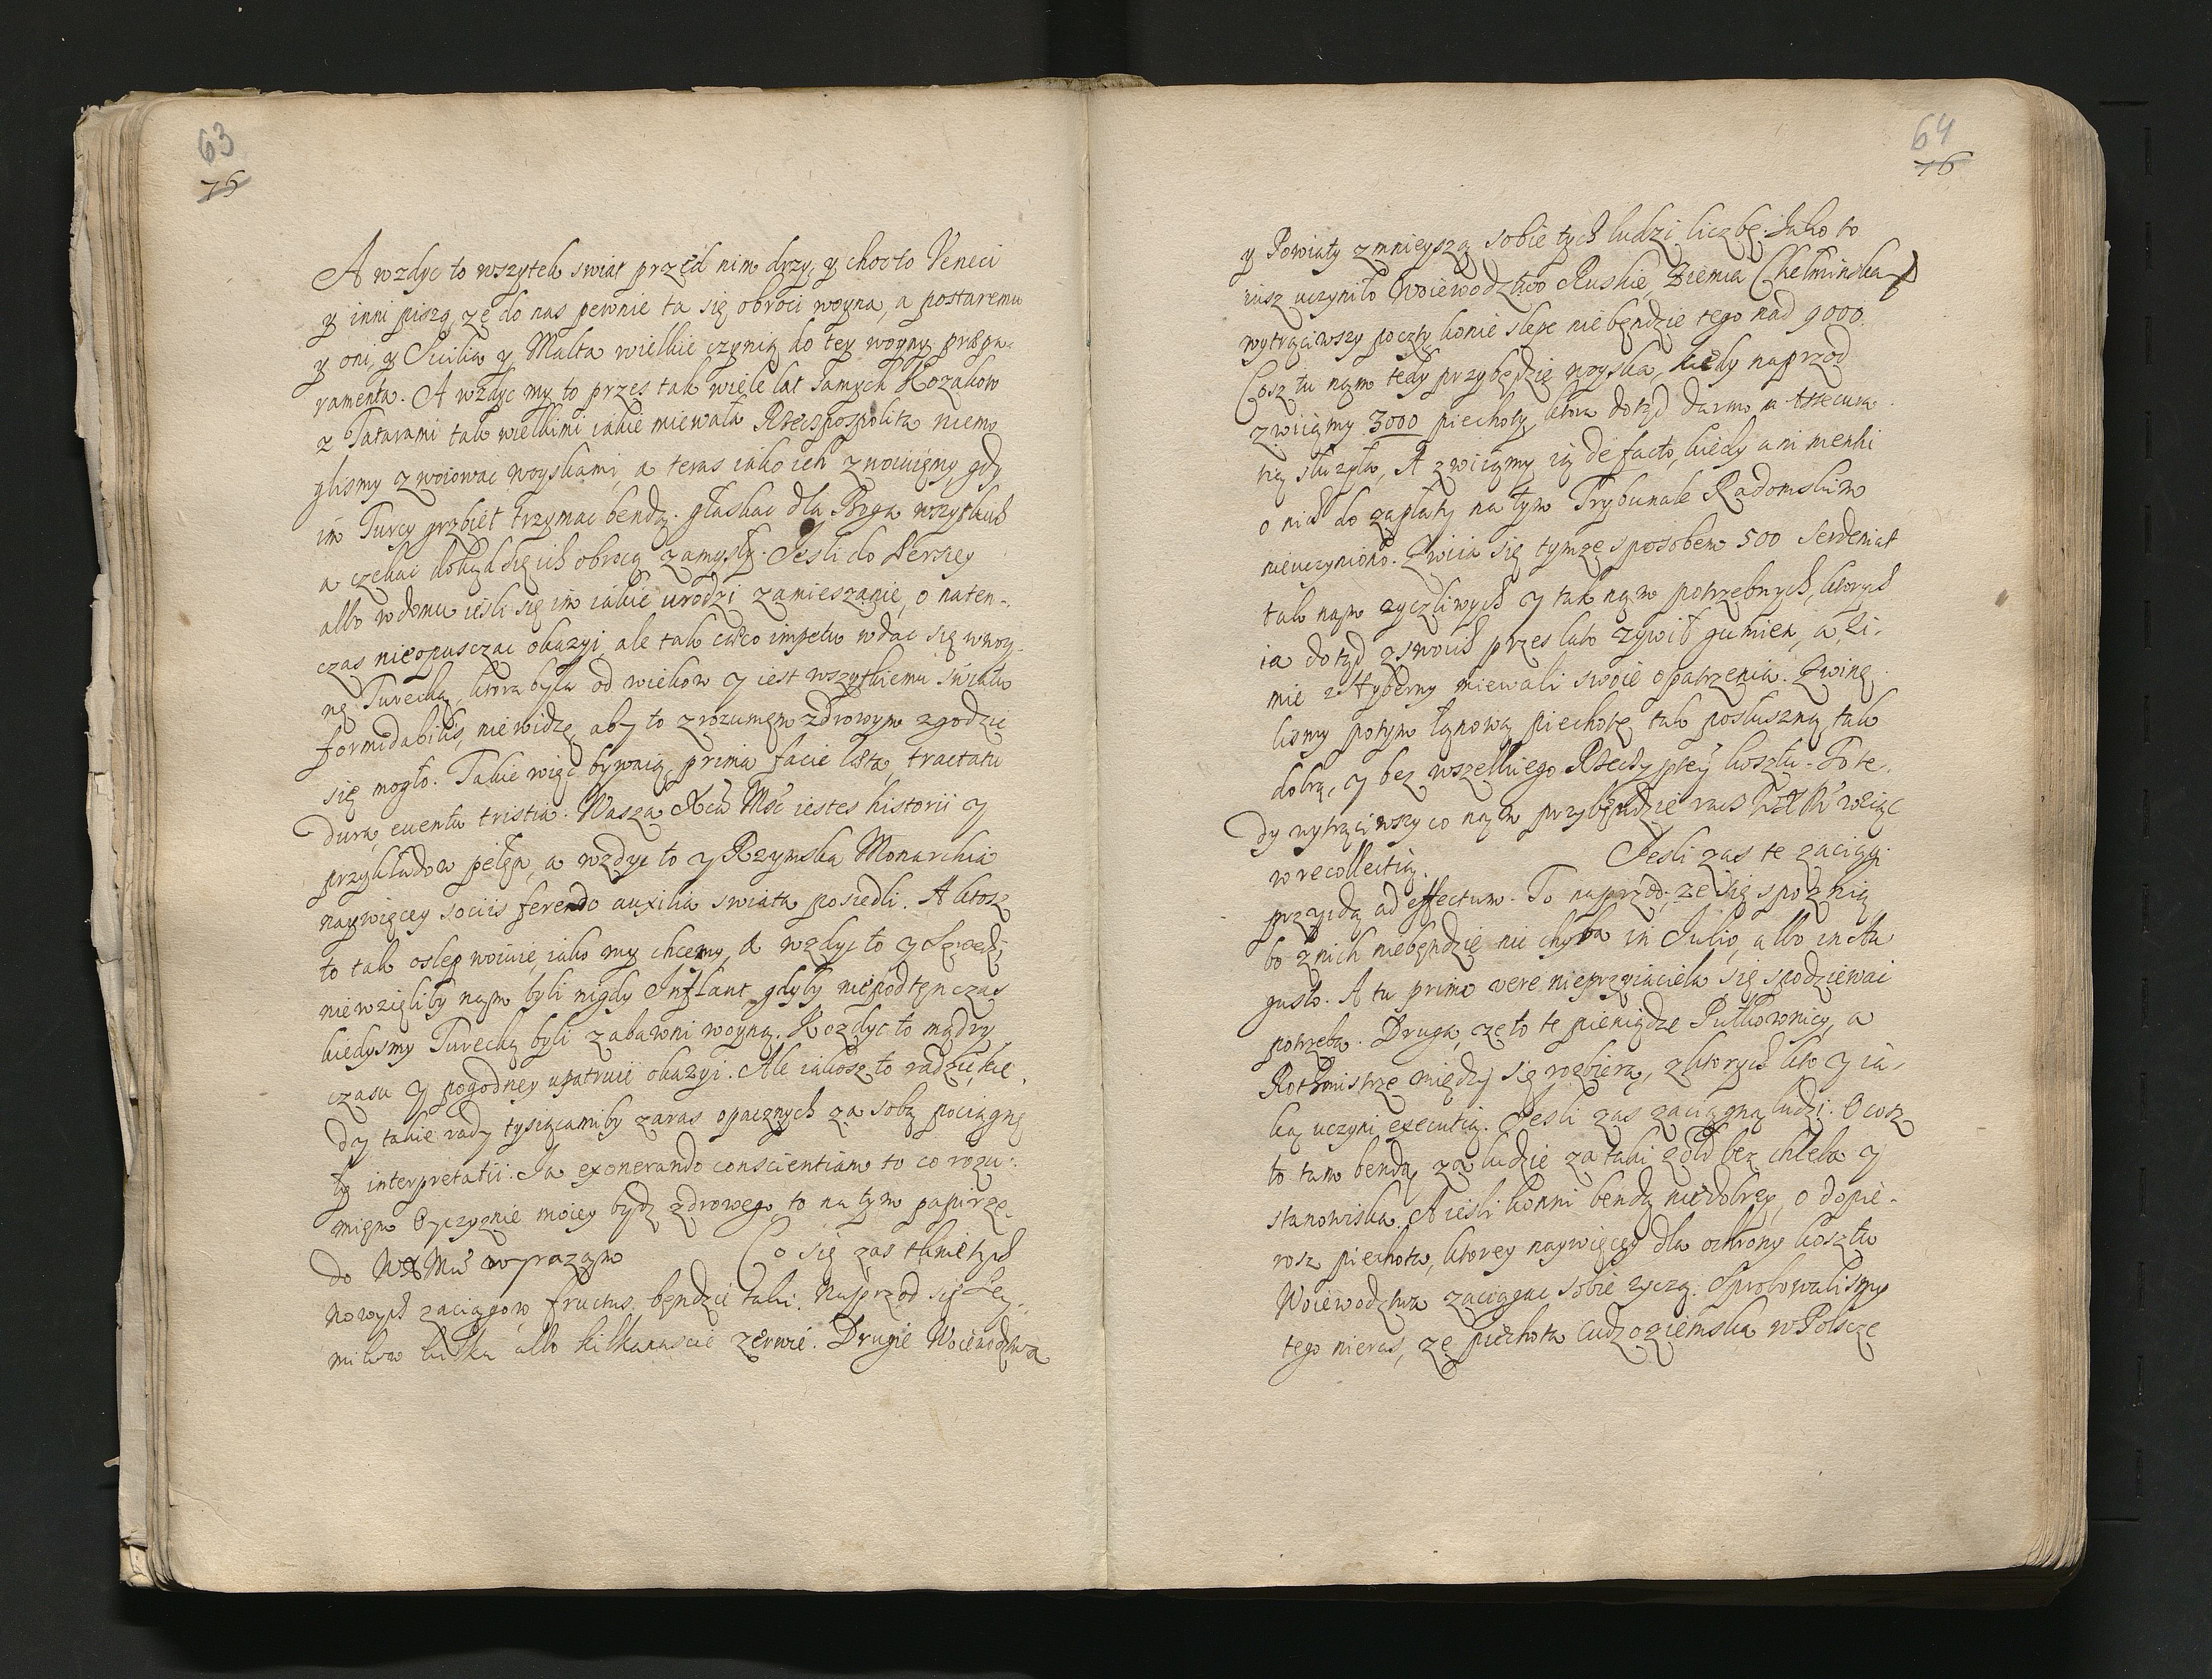 63
76
A wzdyc to wszytek swiat przed nim drzy, y chocto Veneci
y inni piszą, ze do nas pewnie ta się obroci woyna, a postaremu
y oni, y Sicilia y Malta wielkie czynią do tey woyny præpa-
ramenta. A wzdyc my to przes tak wiele lat samych Kozakow
z Tatarami tak wielkimi iakie miewała Rzeczpospolita niemo
glismy zwoiowac woyskami, a teras iako ich zwoiuięmy, gdy
im Turcy grzbiet trzymac bendą. głaskac dla Boga wszytkich
a czekac dokąd się ich obrocą zamysły. Jesli do Persiey
albo w domu iesli się im iakie urodzi zamieszanie, o naten-
czas nieopusczac okazyi, ale tak cæco impetu wdac się w woy-
nę Turecką, ktora była od wiekow y iest wszytkiemu swiatu
formidabilis, niewidzę, aby to z rozumęm zdrowym zgodzic
się mogło. Takie więc bywaią prima facie læta, tractatu
dura, eventu tristia. Wasza Xca Mść iestes historii y
przykładow pełęn, a wzdyc to y Rzymska Monarchia
naywięcey sociis ferendo auxilia swiata posiedli. A ktosz
to tak oslep woiuie, iako my chcemy, A wzdyc to y Szwedzi
niewzięliby nąm byli nigdy Inflant, gdyby niepodtęn czas
kiedysmy Turecką byli zabawni woyną. Kozdyc to mądry
czasu y pogodney upatruie okazyi. Ale iakosz to radzic, kie
dy takie rady tysiącamiby zaras opacznych za sobą pociągnę
ły interpretatii. Ja exonerando conscientiam to co rozu-
mięm Oyczyznie moiey bydz zdrowego, to na tym papirze
do WXMci wyrazam Co się zas tknie tych
nowych zaciągow, fructus bęndzie taki. Naprzod się Sey-
mikow kilka albo kilkanascie zerwie. Drugie Woiewodztwa
64
76
y Powiaty zmnieyszą sobie tych ludzi liczbę. Jako to
iusz uczyniło Woiewodztwo Ruskie, Ziemia Chełminska
wytrąciwszy poczty, konie slepe niebęndzie tego nad 9000.
Cosz tu nąm tedy przybędzie woyska, kiedy naprzod
zwiięmy 3000 piechoty, ktora dotąd darmo na Assecura
tią słuzyła, A zwiięmy ią de facto, kiedy ani menki
o nich do zapłaty na tym Trybunale Radomskim
nieuczyniono. Zwiia się tymze sposobem 500 Serdeniat
tak nąm zyczliwych y tak nąm potrzebnych, ktorych
ia dotąd z swoich przes lato zywił gumien, a Zi-
mie z Hyberny miewali swoie opatrzenia. Zwinę
lismy potym łąnową piechotę tak posłuszną, tak
dobrą, y bez wszelkiego Rzeczyptey kosztu. To te-
dy wytrąciwszy co nąm przybęndzie racz WXM wziąc
w recollectią. Jesli zas te zaciągi
przyidą ad effectum. To naprzod, ze się spoznią
bo z nich niebęndzie nic chyba in Julio, albo in Au
gusto. A tu primo vere nieprzyiaciela się spodziewac
potrzeba. Druga, ze to te pieniądze Pułkownicy, a
Rothmistrze między się rozbierą, z ktorych kto y ia-
ką uczyni executią. Jesli zas zaciągną ludzi. O cosz
to tam bendą za ludzie za taki zołd bez chleba y
stanowiska. A iesli konni bendą niedobrzy, o dopie-
rosz piechota, ktorey naywięcey dla ochrony kosztu
Woiewodztwa zaciągac sobie zyczą. Sprobowalismy
tego nieras, ze piechota Cudzoziemska w Polscze